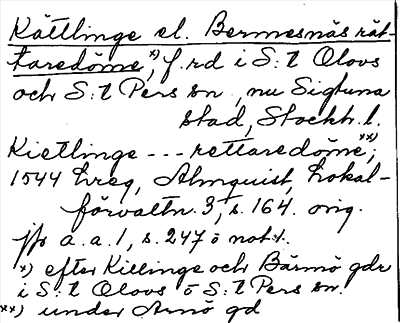 Kättlinge el. Bermesnäs rät-
taredöme,*) f.rd i S:t Olovs
och S:t Pers sn, nu Sigtuna
stad, Stockh. l.
Kietlinge --- rettaredöme**);
1544 hreg, Almquist, Lokal-
förvaltn. 3, s. 164. orig.
jfr a.a. 1, s. 247 o not 1.
*) efter Killinge och Bärmö gdr
i S:t Olovs o S:t Pers sn.
**) under Arnö gd